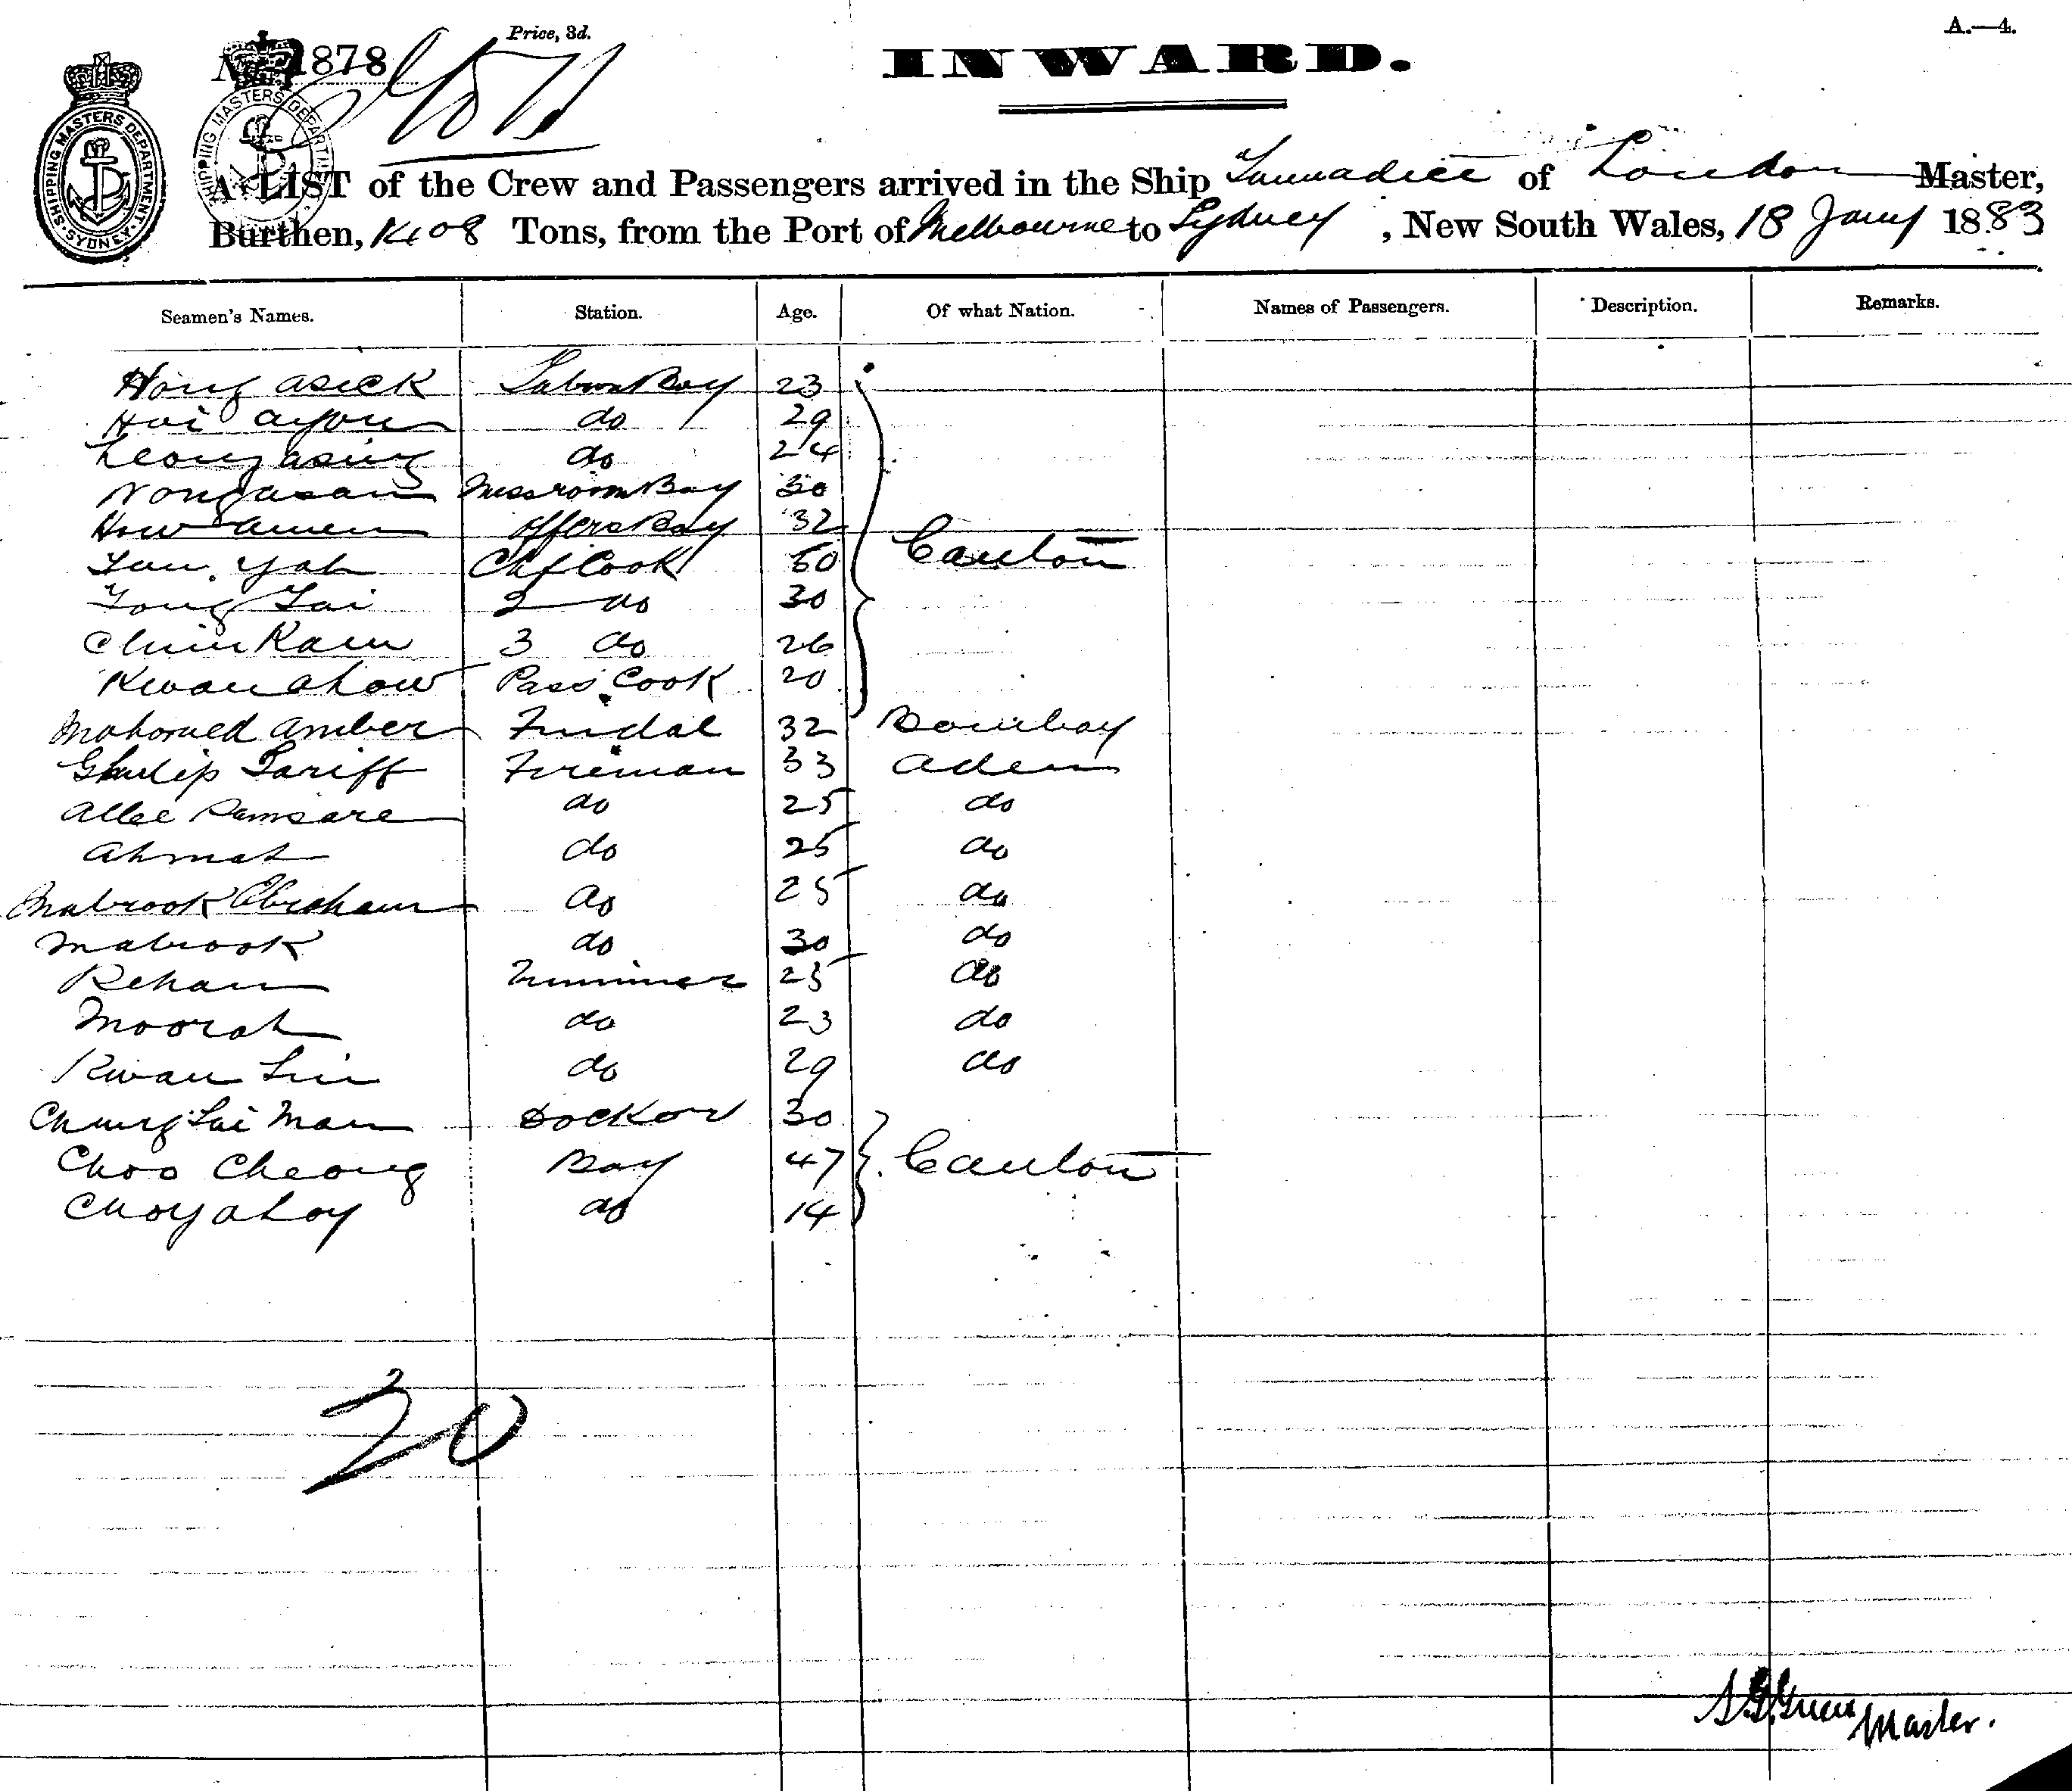 Price, 3d.
A.—4.
1878
INWARD.
SHIPPING MASTERS DEPARTMENT
SYDNEY
SHIPPING MASTERS DEPARTMENT
A LIST of the Crew and Passengers arrived in the Ship Tannadice of London Master,
Burthen, 1408 Tons, from the Port of Melbourne to Sydney, New South Wales, 18 Jany 1883
Seamen's Names. Station. Age. Of what Nation. Names of Passengers. Description. Remarks.
Hong asick Saloon Boy 23
Hoi ayou do 29
Leong asing do 24
Nong asam Messroom Boy 30
How amen offers Boy 32
Yan Yah Chf Cook 50 Canton
Tong Tai 2 do 30
Chin Kam 3 do 26
Kwan ahow Pass Cook 20
Mahomed amber Tindal 32 Bombay
Sariff Fireman 33 aden
allee Ramsare do 25 do
ahmah do 25 do
Mabrook Ebraham do 25 do
Mabrook do 30 do
Rehan Trimmer 25 do
Moorah do 23 do
Kwan do 29 do
Chung Tai Man Docktor 30
Choo Cheong Boy 47 Canton
Choy ahoy do 14
20
S. G. Green Master.